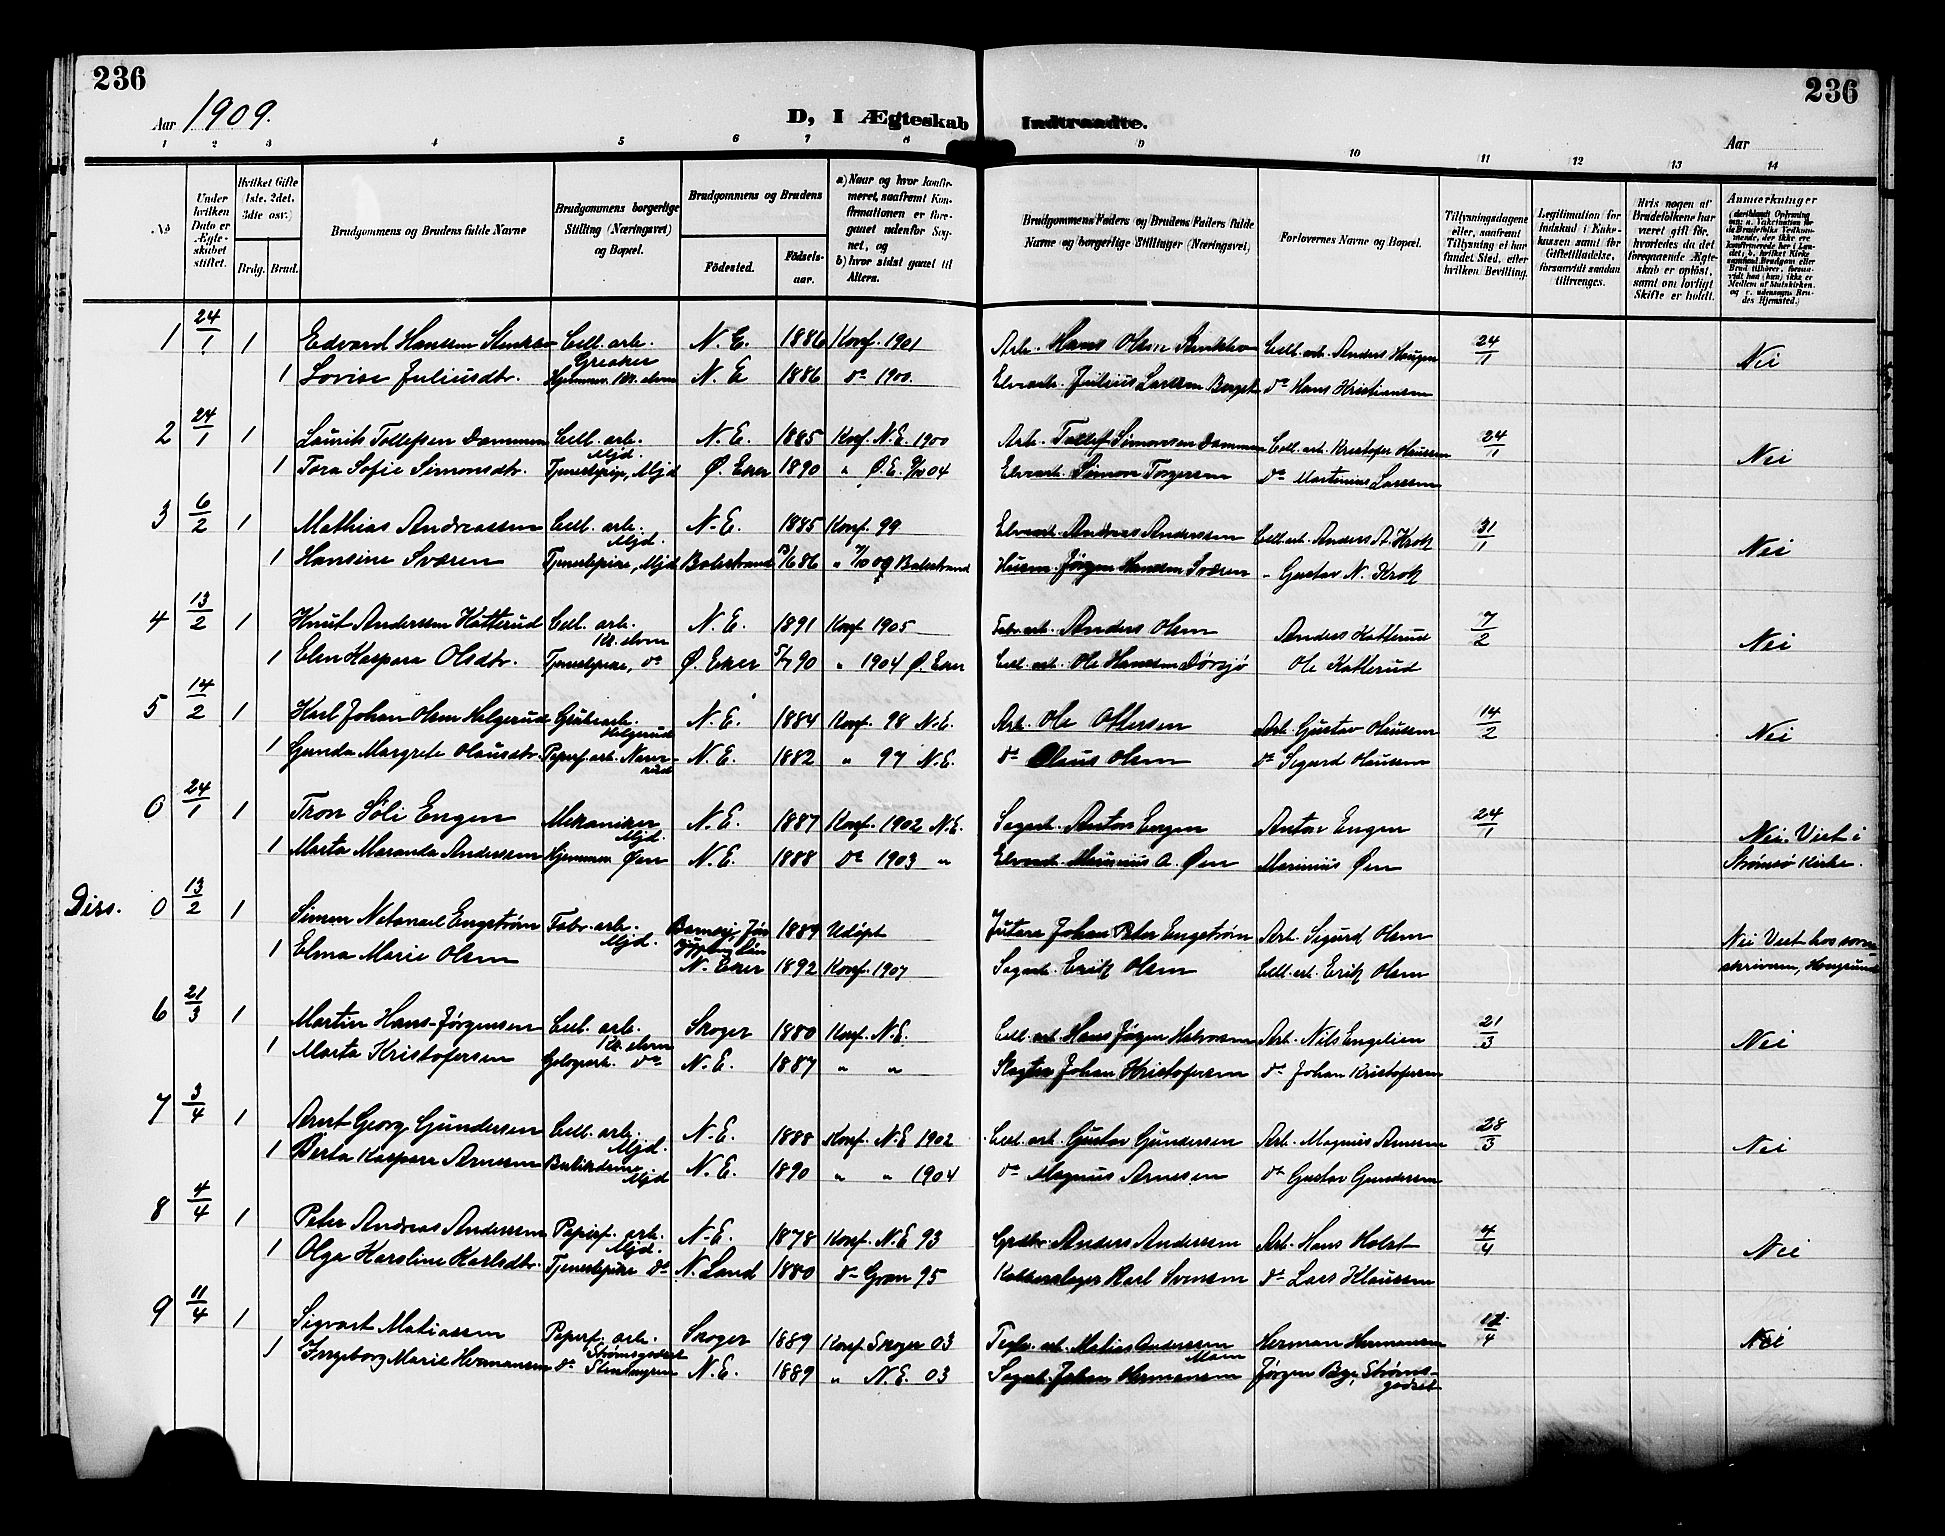 236
236
Aar 1909.
D, I Ægteskab Indtraadte.
Aar
1 2 3 4 5 6 7 8 9 10 11 12 13 14
No
Under hvilken Dato er Ægteskabet stiftet.
Hvilket Gifte 1ste, 2det, 3dte osv.)
Brdg. Brud.
Brudgommens og Brudens fulde Navne
Brudgommens borgerlige Stilling (Næringsvei) og Bopæl.
Brudgommens og Brudens
Fødested.
Fødselsaar.
a) Naar og hvor konfirmeret, saafremt Konfirmationen er foregaaet udenfor Sognet, og
b) hvor sidst gaaet til Alters.
Brudgommens Faders og Brudens Faders fulde Navne og borgerlige Stillinger (Næringsvei)
Forlovernes Navne og Bopæl.
Tillysningsdagene eller, saafremt Tillysning ei har fundet Sted, efter hvilken Bevilling.
Legitimation for Indskud i Enkekassen samt for Giftetilladelse, forsaavidt saadan tiltrænges.
Hvis nogen af Brudefolkene har været gift før, hvorledes da det foregaaende Ægteskab er opløst, samt om lovligt Skifte er holdt.
Anmerkninger
1 24/1 1 Edvard Hansen Stenkbo Cell. arb. Greaker N. E. 1886 Konf. 1901 Arb. Hans Olsen Cell. arb. Anders Haugen 24/1 Nei
1 Lovise Juliusdtr. Hjemmev. Kr. elven N. E 1886 do 1900. Elvearb. Julius Larssen do Hans Kristiansen
2 24/1 1 Laurits Tollefsen Dammen Cell. arb. Mjd. N. E. 1885 Konf. N. E. 1900 Arb. Tollef Simonsen Dammen Cell. arb. Kristofer Claussen 24/1 Nei
1 Tora Sofie Simonsdtr. Tjenestepige, Mjd Ø. Eker 1890 " Ø. E. 9/10 04 Elvearb. Simon Torgersen do Martinius Larssen
3 6/2 1 Mathias Andreassen Cell. arb. Mjd. N. E. 1885 Konf. 99 Elvearb. Andreas Anderssen Cell. arb. Anders A. Krok 31/1 Nei
1 Hansine Sværen Tjenestepike, Mjd Balestrand 86 " Balestrand Husm. Jørgen Hansen Sværen " Gustav N. Krok
4 13/2 1 Knut Anderssen Katterud Cell. arb. Kr. elven N. E. 1891 Konf. 1905 Fabr. arb. Anders Olsen Anders Katterud 7/2 Nei
1 Elen Kaspara Olsdtr. Tjenestepike, do Ø. Eker 5/7 90 " 1904 Ø. Eker Cell. arb. Ole Hanssen Dørsjø Ole Katterud
5 14/2 1 Karl Johan Olsen Helgerud Grubearb. Helgerud N. E. 1884 Konf. 98 N. E. Arb. Ole Ottersen Arb. Gustav Claussen 14/2 Nei
1 Gunda Margrete Olausdtr. Papirf. arb. Naverrud N. E. 1882 " 97 N. E. do Olaus Olsen do Sigurd Olaussen
0 24/1 1 Tron Søli Engen Mekaniker Mjd. N. E. 1887 Konf. 1902 N. E. Sagarb. Anton Engen Anton Engen 24/1 Nei. Viet i
1 Marta Maranda Anderssen Hjemmev. Øen N. E. 1888 do 1903 " Elvearb. A. Øen Marinius Øen Strømsø Kirke.
Diss. 0 13/2 1 Simon Natanael Engstrøm Fabr. arb. Mjd. 1889 Udøpt Johan Peter Engstrøm Arb. Sigurd Olsen Nei Viet hos soren-
1 Elma Marie Olsen N. Eker 1892 Konf. 1907 Sagarb. Erik Olsen Cell. arb. Erik Olsen skriveren, Haugsund
6 21/3 1 Martin Hans-Jørgensen Cell. arb. Kr. elven Skoger 1880 Konf. N. E. Cell. arb. Hans Jørgen Halvorsen Arb. Nils Engelien 21/3 Nei
1 Marta Kristofersen do N. E. 1887 " " Slagter Johan Kristofersen do Johan Kristofersen
7 3/4 1 Arnt Georg Gundersen Cell. arb. Mjd. N. E. 1888 Konf. N. E 1902 Cell. arb. Gustav Gundersen Arb. Magnus Arnesen 28/3 Nei
1 Berta Kaspara Arnesen Butikdame Mjd N. E. 1890 " " 1904 do Magnus Arnesen do Gustav Gundersen
8 4/4 1 Peter Andreas Anderssen Papirf. arb. Mjd. N. E. 1878 Konf. N. E 93 Anders Anderssen Arb. Hans Holst 4/4 Nei
1 Olga Karoline Karlsdtr. Tjenestepike do N. Land 1880 do Gran 95 Kobberslager Karl Svensen do Lars Klaussen
9 11/4 1 Sigvart Matiassen Papirf. arb. Strømsgodset Skoger 1889 Konf. Skoger 03 Teglv. arb. Matias Anderssen Herman Hermansen 12/4 Nei
1 Ingeborg Marie Hermansen do N. E. 1889 " N. E. 03 Sagarb. Johan Hermansen Jørgen Bye, Strømsgodset